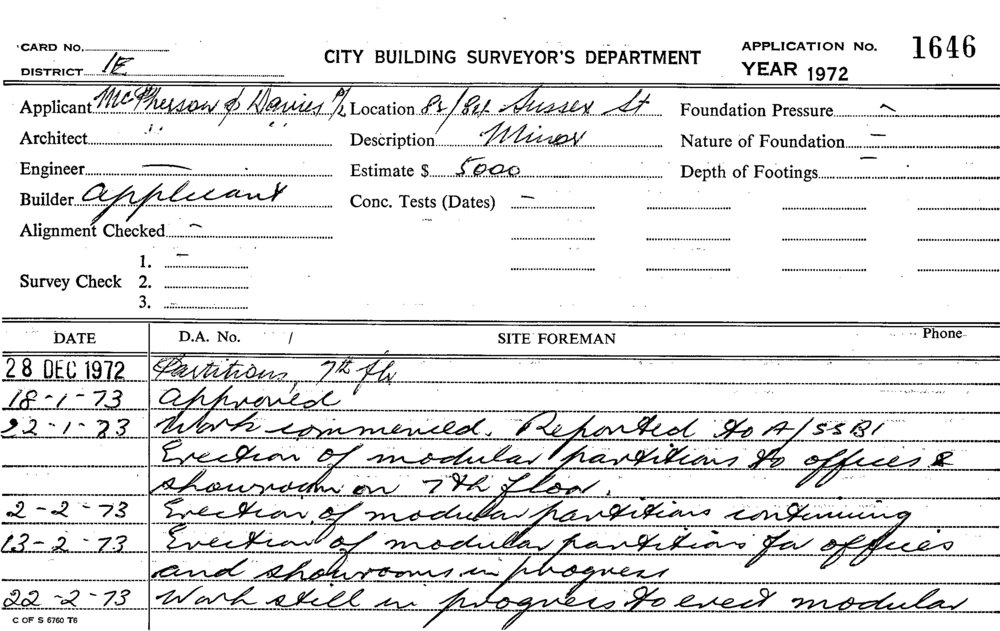 CARD No.
CITY BUILDING SURVEYOR'S DEPARTMENT
APPLICATION No. 1646
DISTRICT 1E
YEAR 1972
Applicant McPherson & Davies P/L Location 82/84 Sussex St Foundation Pressure -
Architect " " Description Minor Nature of Foundation -
Engineer — Estimate $ 5000 Depth of Footings -
Builder Applicant Conc. Tests (Dates) -
Alignment Checked -
1. -
Survey Check 2.
3.
DATE D.A. No. / SITE FOREMAN Phone
28 DEC 1972 Partitions, 7th flr
18-1-73 Approved
22-1-73 Work commenced. Reported to A/SSBI
Erection of modular partitions to offices &
showroom on 7th floor.
2-2-73 Erection of modular partitions continuing
13-2-73 Erection of modular partitions for offices
and showrooms in progress
22-2-73 Work still in progress to erect modular
C OF S 6760 T6